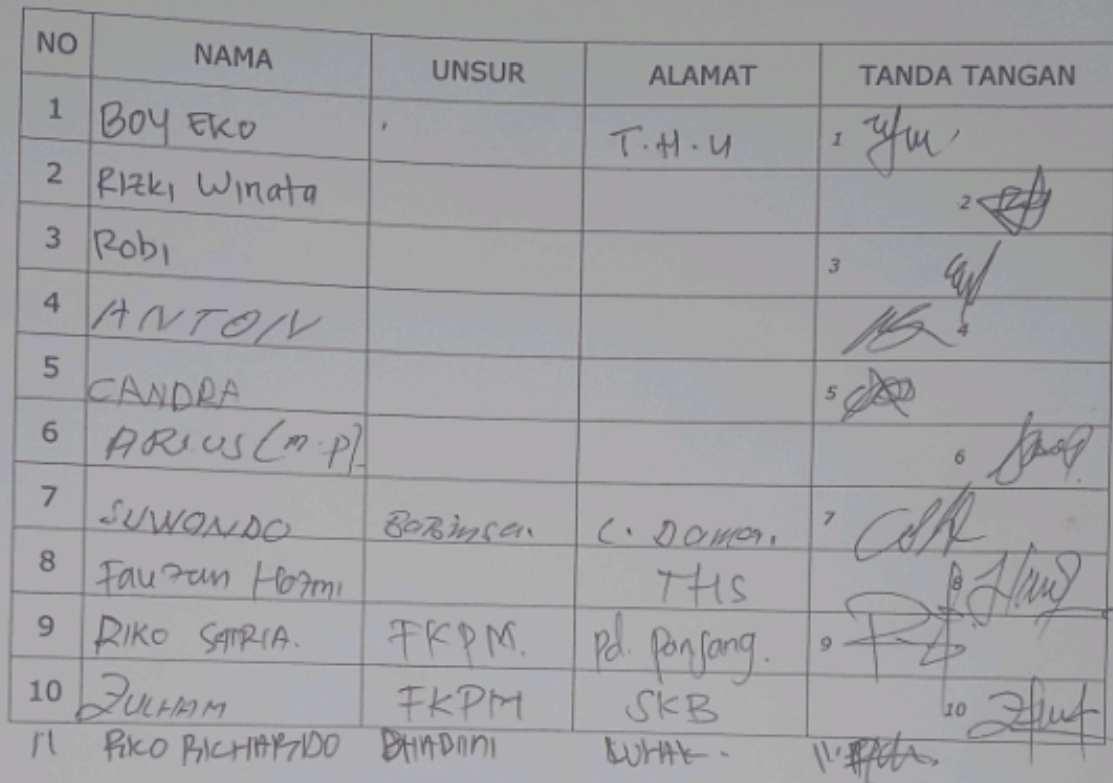 NO NAMA UNSUR ALAMAT TANDA TANGAN
1 BOY EKO T.H.U 1
2 Rizki Winata 2
3 Robi 3
4 ANTON 4
5 CANDRA 5
6 ARIUS (M.P) 6
7 SUWONDO Babinsa. L. Damar. 7
8 Fauzan Hazmi THS 8
9 RIKO SATRIA. FKPM. Pd. Panjang. 9
10 ZULHAM FKPM SKB 10
11 RIKO RICHARDO 11.